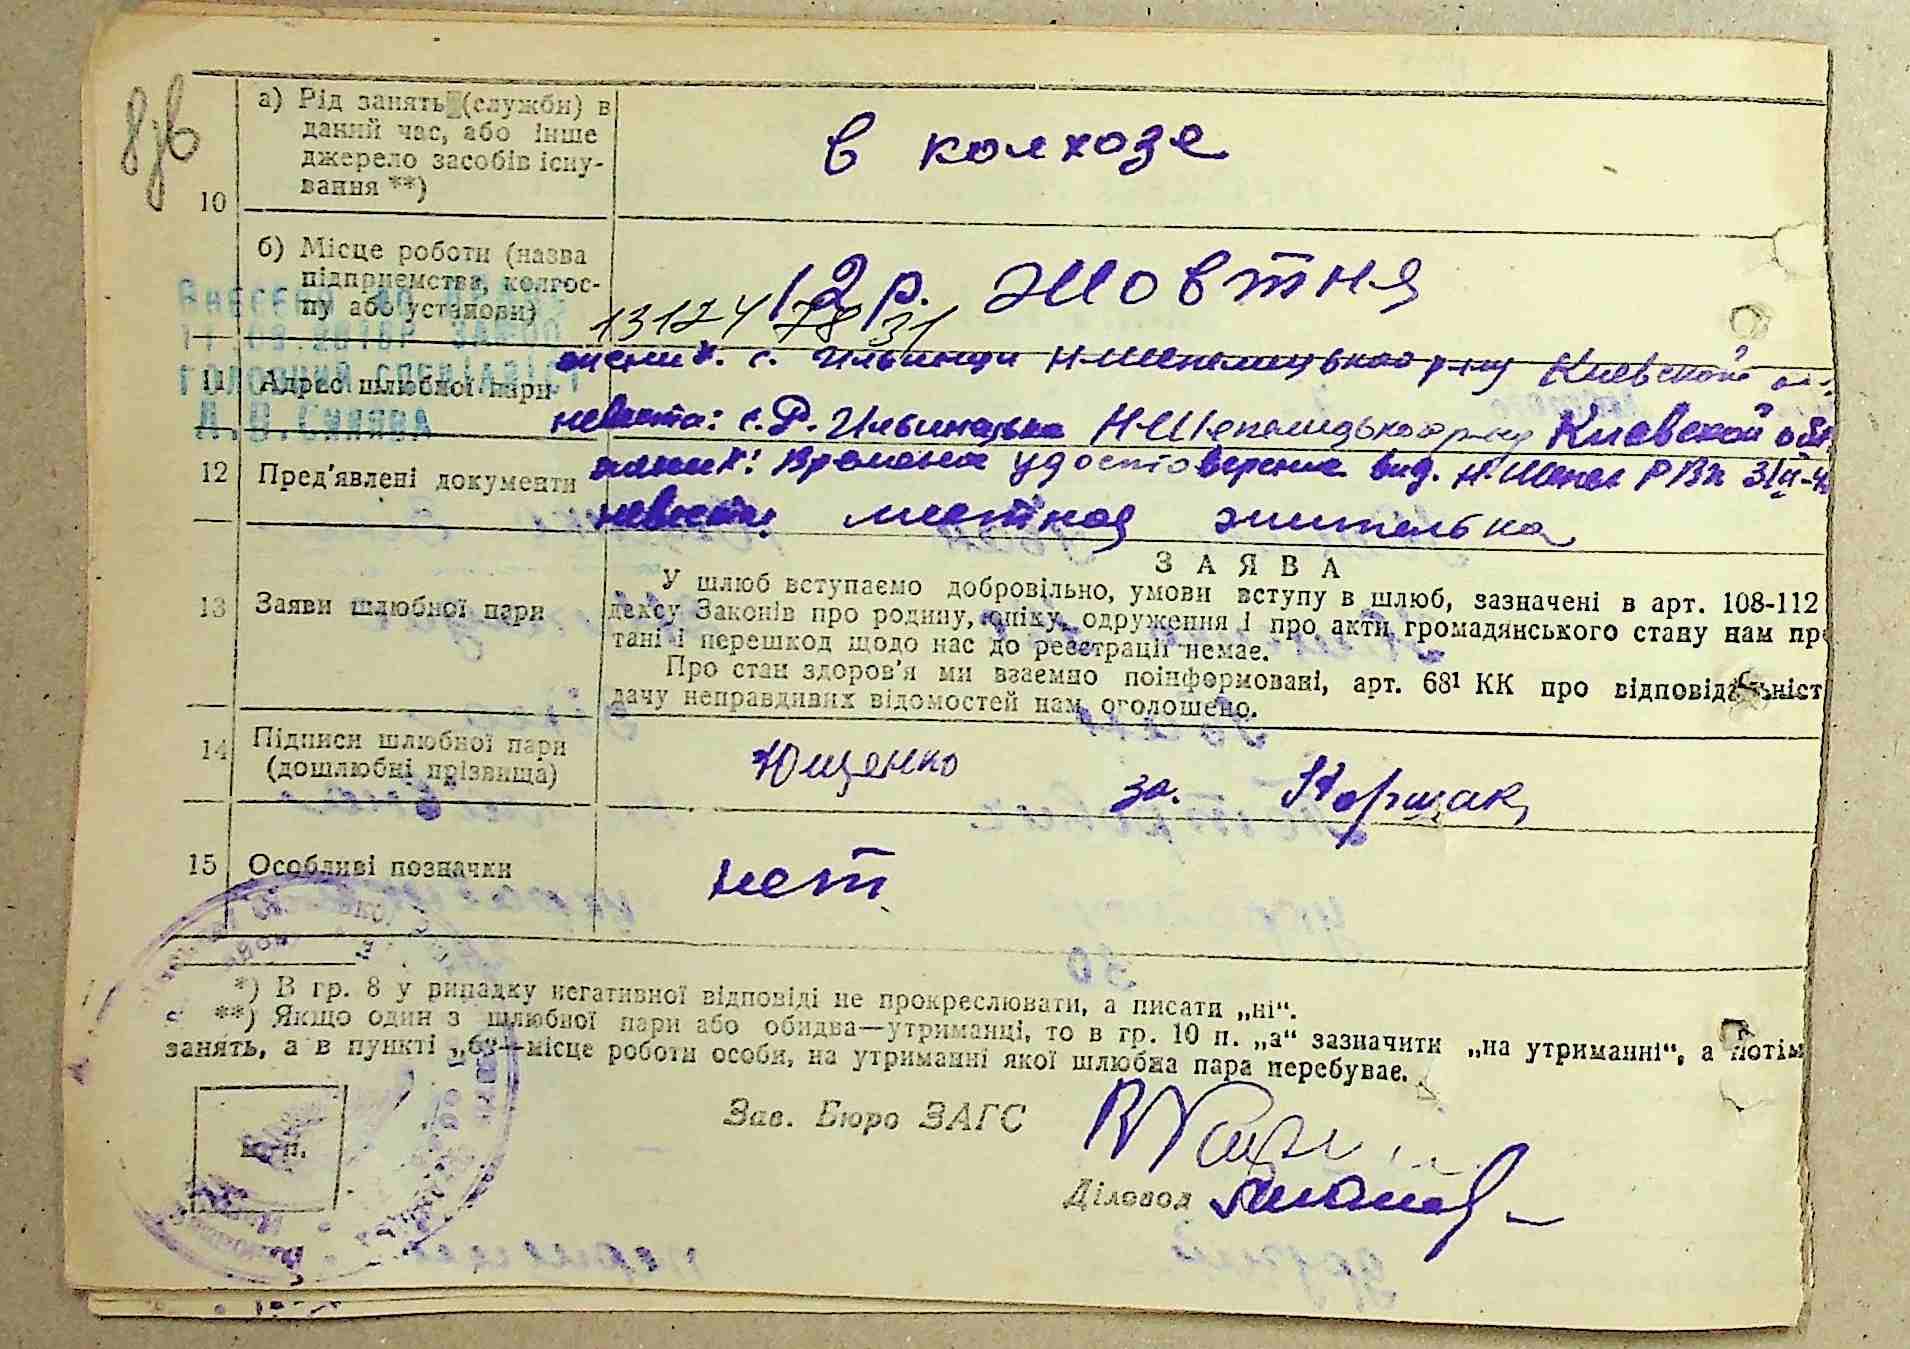 8зв
10
а) Рід занять (служби) в
даний час, або інше
джерело засобів існу-
вання **)
в колхозе
б) Місце роботи (назва
підприємства, колгос-
пу або установи)
12 р. Жовтня
13124 78 31
11 Адрес шлюбної пари
жених. с. Ильинци Н-Шепелицького р-ну Киевской
невеста: с. Р. Ильинецька Н-Шепелицького р-ну Киевской обл
12 Пред'явлені документи
жених: Времоное удостоверение вид. Н-Шепел РВК
невеста: местная жителька
13 Заяви шлюбної пари
ЗАЯВА
У шлюб вступаємо добровільно, умови вступу в шлюб, зазначені в арт. 108-112
дексу Законів про родину, опіку, одруження і про акти громадянського стану нам пр
тані і перешкод щодо нас до реєстрації немає.
Про стан здоров'я ми взаємно поінформовані, арт. 68¹ КК про відповідальніст
дачу неправдивих відомостей нам оголошено.
14 Підписи шлюбної пари
(дошлюбні прізвища)
Ющенко за. Коршак
15 Особливі позначки
нет
*) В гр. 8 у випадку негативної відповіді не прокреслювати, а писати „ні“.
**) Якщо один з шлюбної пари або обидва—утриманці, то в гр. 10 п. „а“ зазначити „на утриманні“, а потім
занять, а в пункті „б“—місце роботи особи, на утриманні якої шлюбна пара перебуває.
Зав. Бюро ЗАГС
м. п.
Діловод